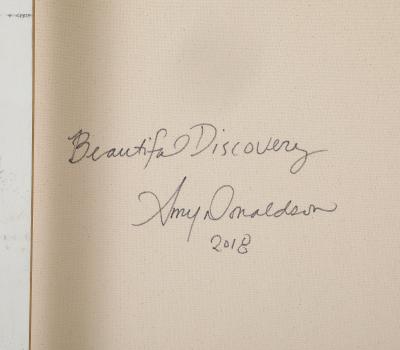 Beautiful Discovery
Amy Donaldson
2018